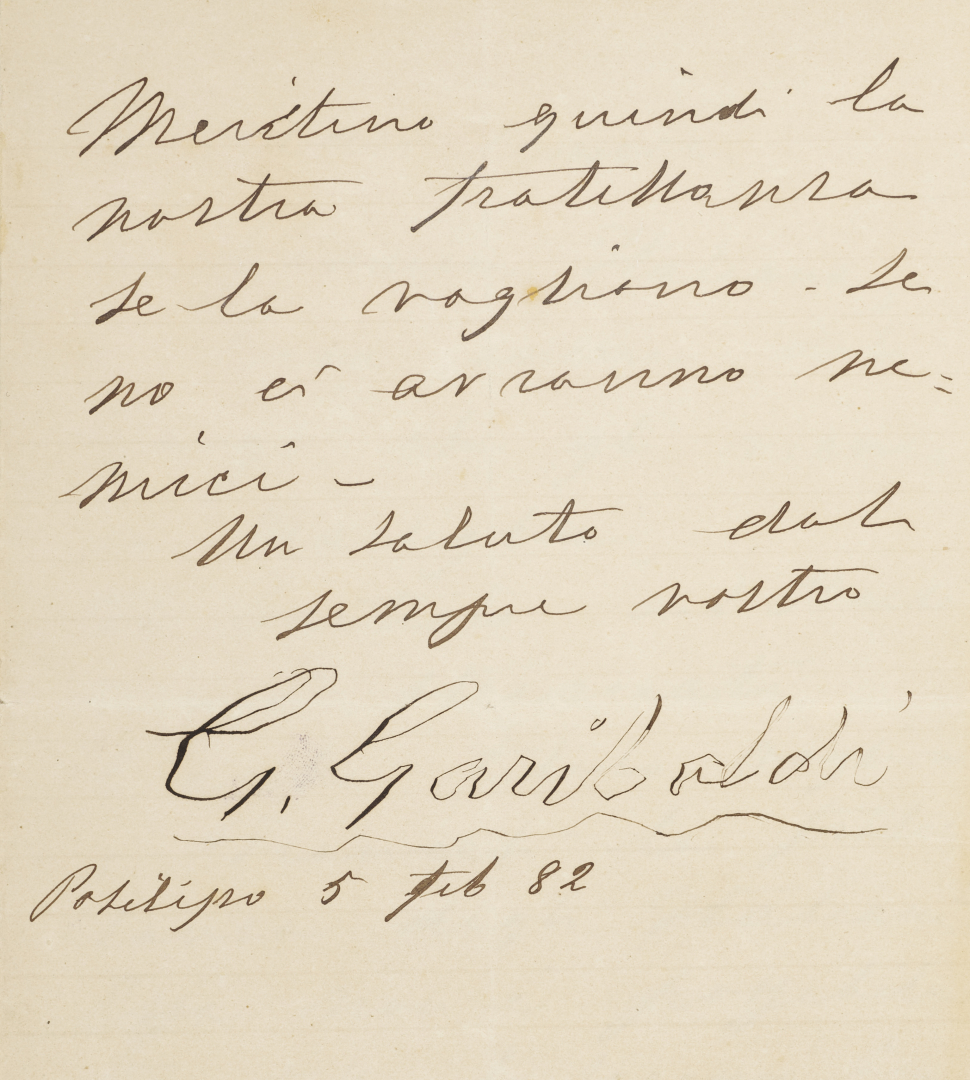 Meritino quindi la
nostra fratellanza
se la vogliono - Se
no ci avranno ne=
mici -
Un saluto dal
sempre vostro
G. Garibaldi
Posilipo 5 feb 82